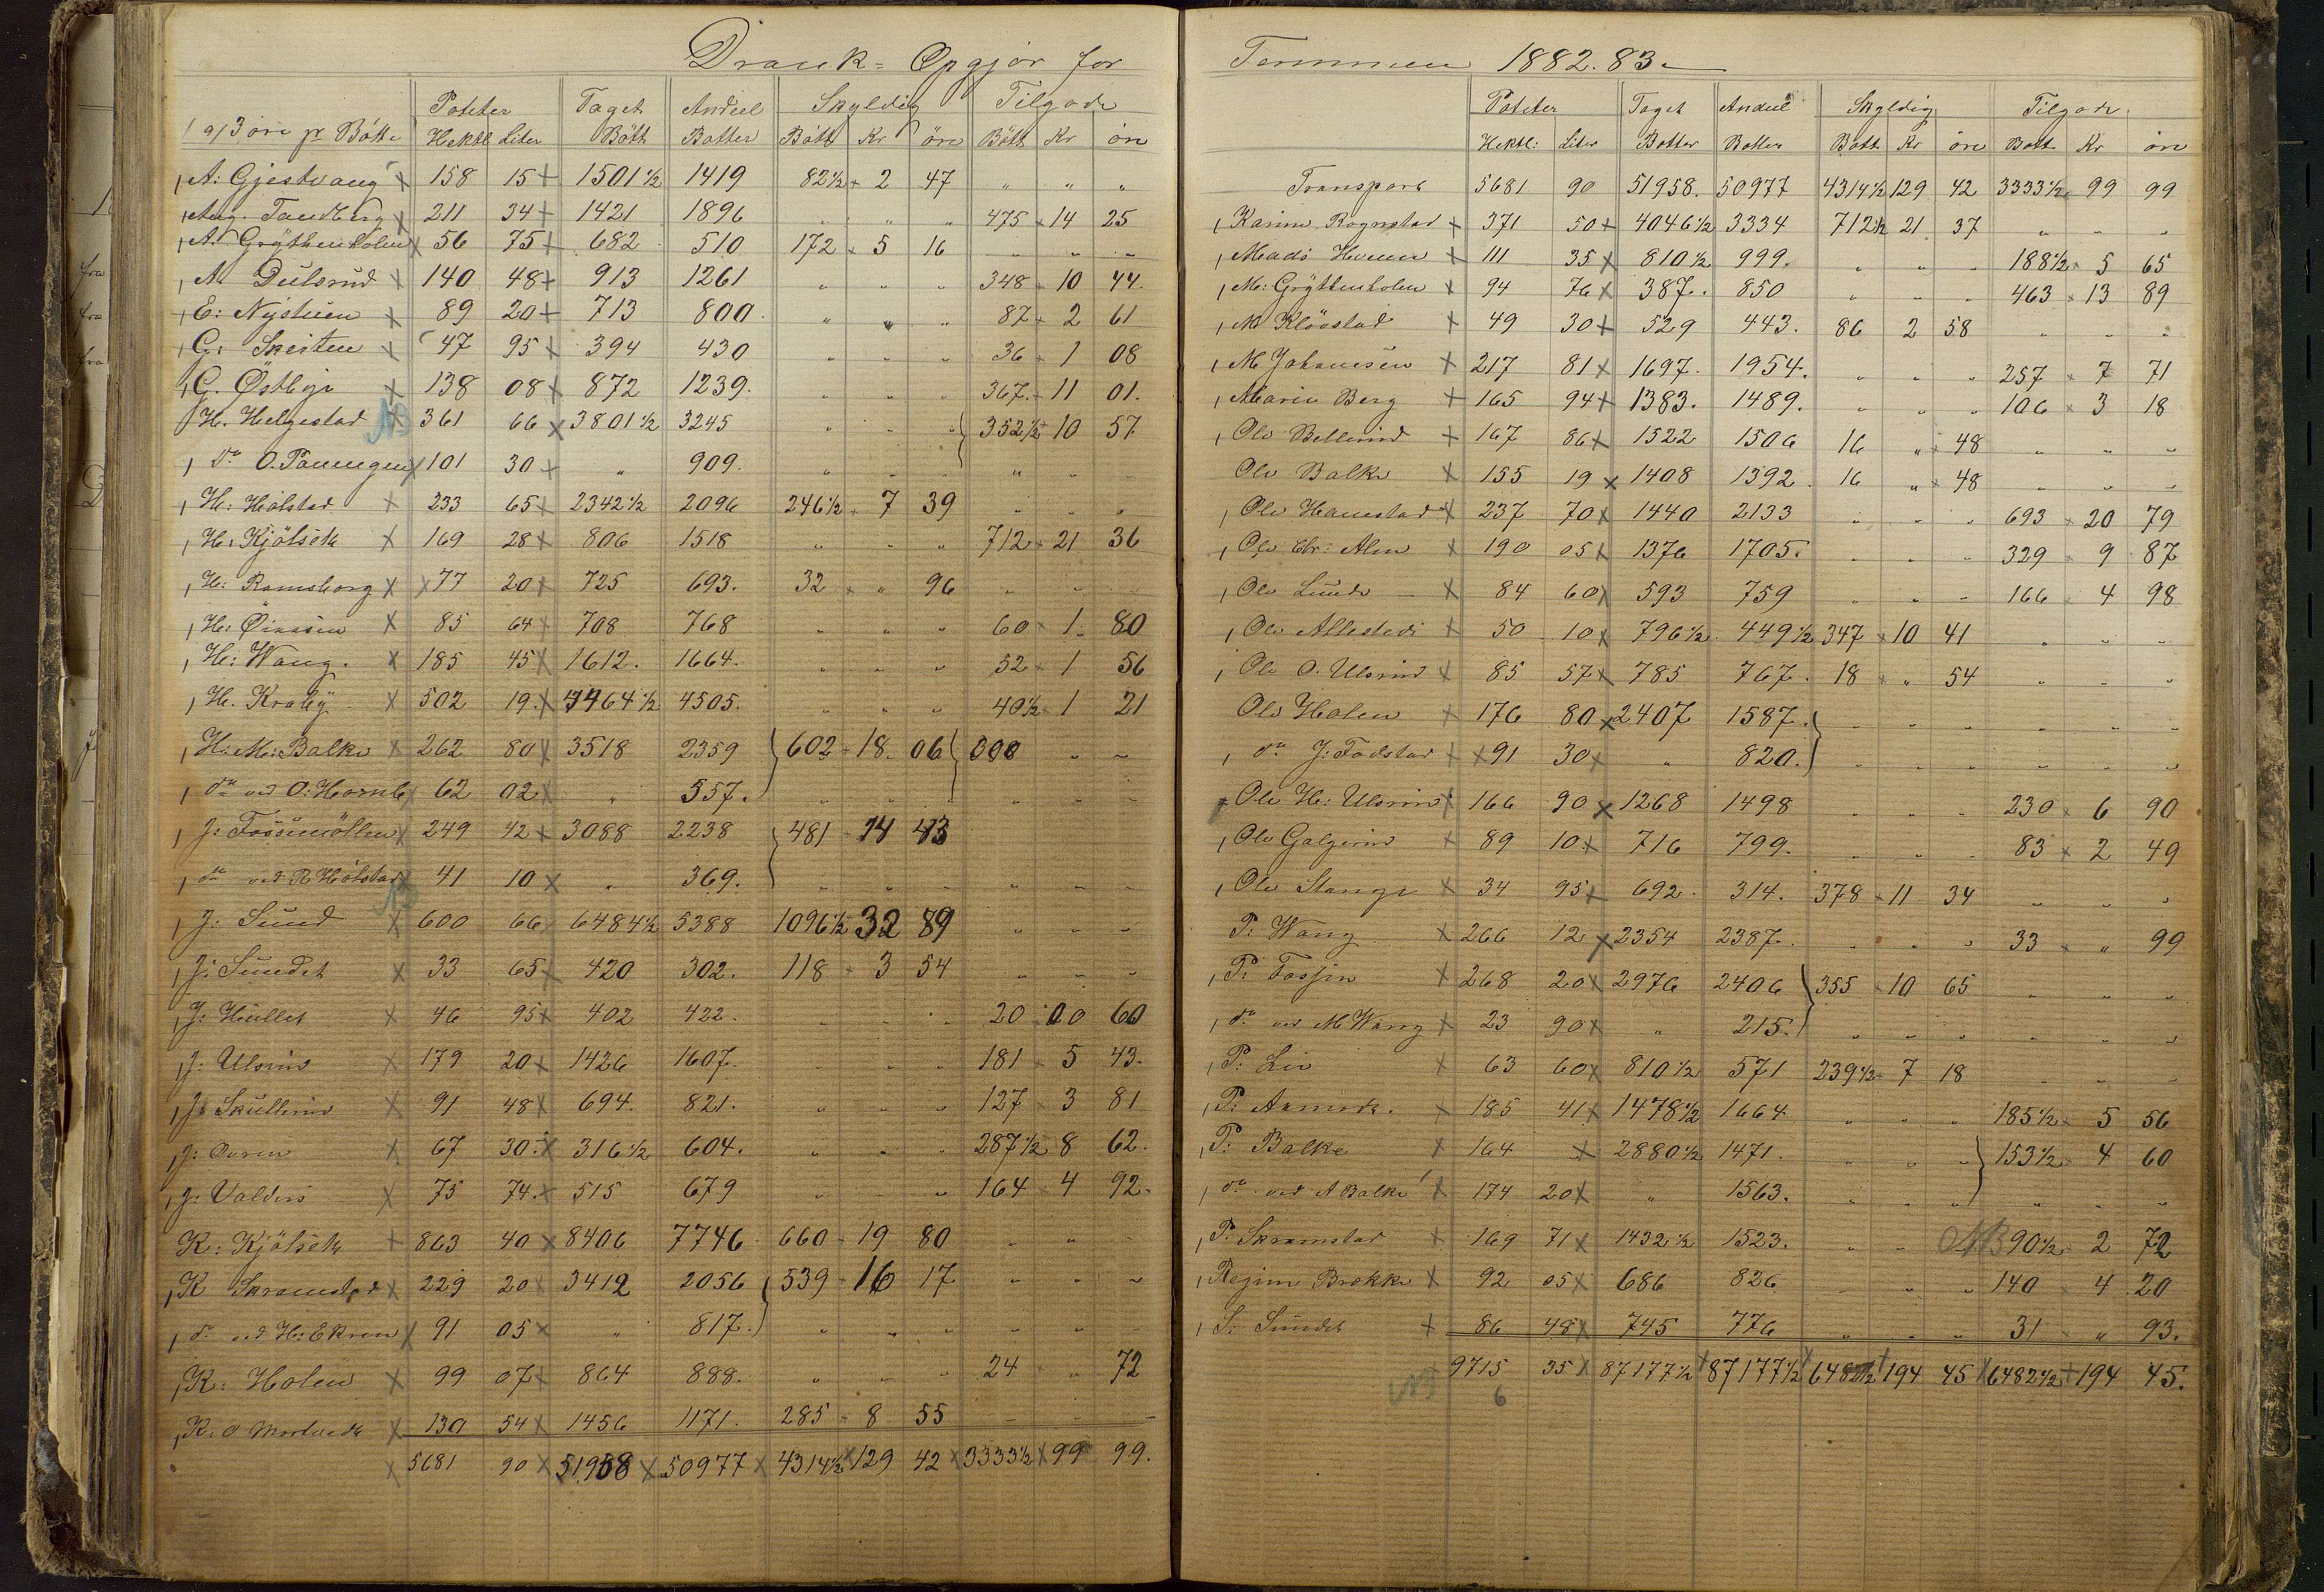 Drank= Opgjör for
Poteter Taget Andeel Skyldig Tilgode
a/ 3 öre pr Bötte Hektl Liter Bött Bøtter Bött Kr öre Bött Kr öre
A: Gjestvang 158 15 1501½ 1419 82½ 2 47 " " "
Aug. Tandberg 211 34 1421 1896 " " " 475 14 25
A. Grythenholen 56 75 682 510 172 5 16 " " "
A. Dulsrud 140 48 913 1261 " " " 348 10 44.
E: Nystuen 89 20 713 800. " " " 87 2 61
G: Skeiten 47 95 394 430 " " " 36 1 08
G. Östbye 138 08 872 1239. " " " 367 11 01.
H. Helgestad NB 361 66 3801½ 3245 " " " 352½ 10 57
do O. Paunengen 101 30 " 909. " " " " " "
H: Hölstad 233 65 2342½ 2096 246½ 7 39 " " "
H: Kjölseth 169 28 806 1518 " " " 712 21 36
H: Ramsborg 77 20 725 693. 32 " 96 " " "
H: Öiversen 85 64 708 768 " " " 60 1 80
H: Wang. 185 45 1612. 1664. " " " 52 1 56
H. Kraby 502 19. 4464½ 4505. " " " 40½ 1 21
H: M: Balke 262 80 3518 2359 602 18. 06 000 " "
do ved O: Hornb 62 02 " 557. " " " " " "
J: Fossemöllen 249 42 3088 2238 481 14 43
do ved R Hölstad 41 10 " 369. " " " " " "
NB
J: Sund 600 66 6484½ 5388 1096½ 32 89 " " "
J: Sundet 33 65 420 302. 118 3 54 " " "
J: Hullet 46 95 402 422. " " " 20 00 60
J: Ulsrud 179 20 1426 1607. " " " 181 5 43.
J: Skullerud 91 48 694. 821. " " " 127 3 81
J: Overn 67 30. 316½ 604. " " " 287½ 8 62.
J: Valders 75 74. 515 679 " " " 164 4 92.
K: Kjölseth 863 40 8406 7746 660 19 80 " " "
K Skramstad 229 20 3412 2056 539 16 17 " " "
do ved H: Ekren 91 05 " 817. " " " " " "
K: Holen 99 07 864 888. " " " 24 " 72
K: O Mortvedt 130 54 1456 1171. 285 8 55 " " "
5681 90 51958 50977 4314½ 129 42 3333½ 99 99.
Terminen 1882.83.
Poteter Taget Andeel Skyldig Tilgode
Hektl: Liter Bøtter Bøtter Bøtt Kr öre Bøtt Kr öre
Transport 5681 90 51958. 50977 4314½ 129 42 3333½ 99 99
Karine Rognstad 371 50 4046½ 3334 712½ 21 37 " " "
Mads Hveem 111 35 810½ 999. " " " 188½ 5 65
M: Gryttenholen 94 76 387. 850 " " " 463 13 89
M Klövstad 49 30 529 443. 86 2 58 " " "
M Johansen 217 81 1697. 1954. " " " 257 7 71
Marin Berg 165 94 1383. 1489. " " " 106 3 18
Ole Bellerud 167 86 1522 1506 16 " 48 " " "
Ole Balke 155 19 1408 1392. 16 " 48 " " "
Ole Hanestad 237 70 1440 2133 " " " 693 20 79
Ole Chr: Alm 190 05 1376 1705. " " " 329 9 87
Ole Lunde 84 60 593 759 " " " 166 4 98
Ole Allestedi 50 10 796½ 449½ 347 10 41 " " "
Ole O. Ulsrud 85 57 785 767. 18 " 54 " " "
Ole Holen 176 80 2407 1587. " " " " " "
do J: Fodstad 91 30 " 820. " " " " " "
Ole H: Ulsrud 166 90 1268 1498 " " " 230 6 90
Ole Galgerud 89 10. 716 799. " " " 83 2 49
Ole Stange 34 95 692. 314. 378 11 34 " " "
P: Wang 266 12 2354 2387. " " " 33 " 99
P: Fossen 268 20 2976 2406 355 10 65 " " "
do ved M Wang 23 90 " 215. " " " " " "
P: Lie 63 60 810½ 571 239½ 7 18 " " "
P: Aamodt. 185 41 1478½ 1664. " " " 185½ 5 56
P: Balke 164 2880½ 1471. " " " 153½ 4 60
do ved A Balke 174 20 " 1563. " " " " " "
P: Skramstad 169 71 1432½ 1523. " " NB 90½ 2 72
Regine Brokke 92 05 686 826 " " " 140 4 20
S: Sundet 86 48 745 776 " " " 31 " 93.
NB 9715 35 87177½ 87177½ 6482½ 194 45 6482½ 194 45.
6